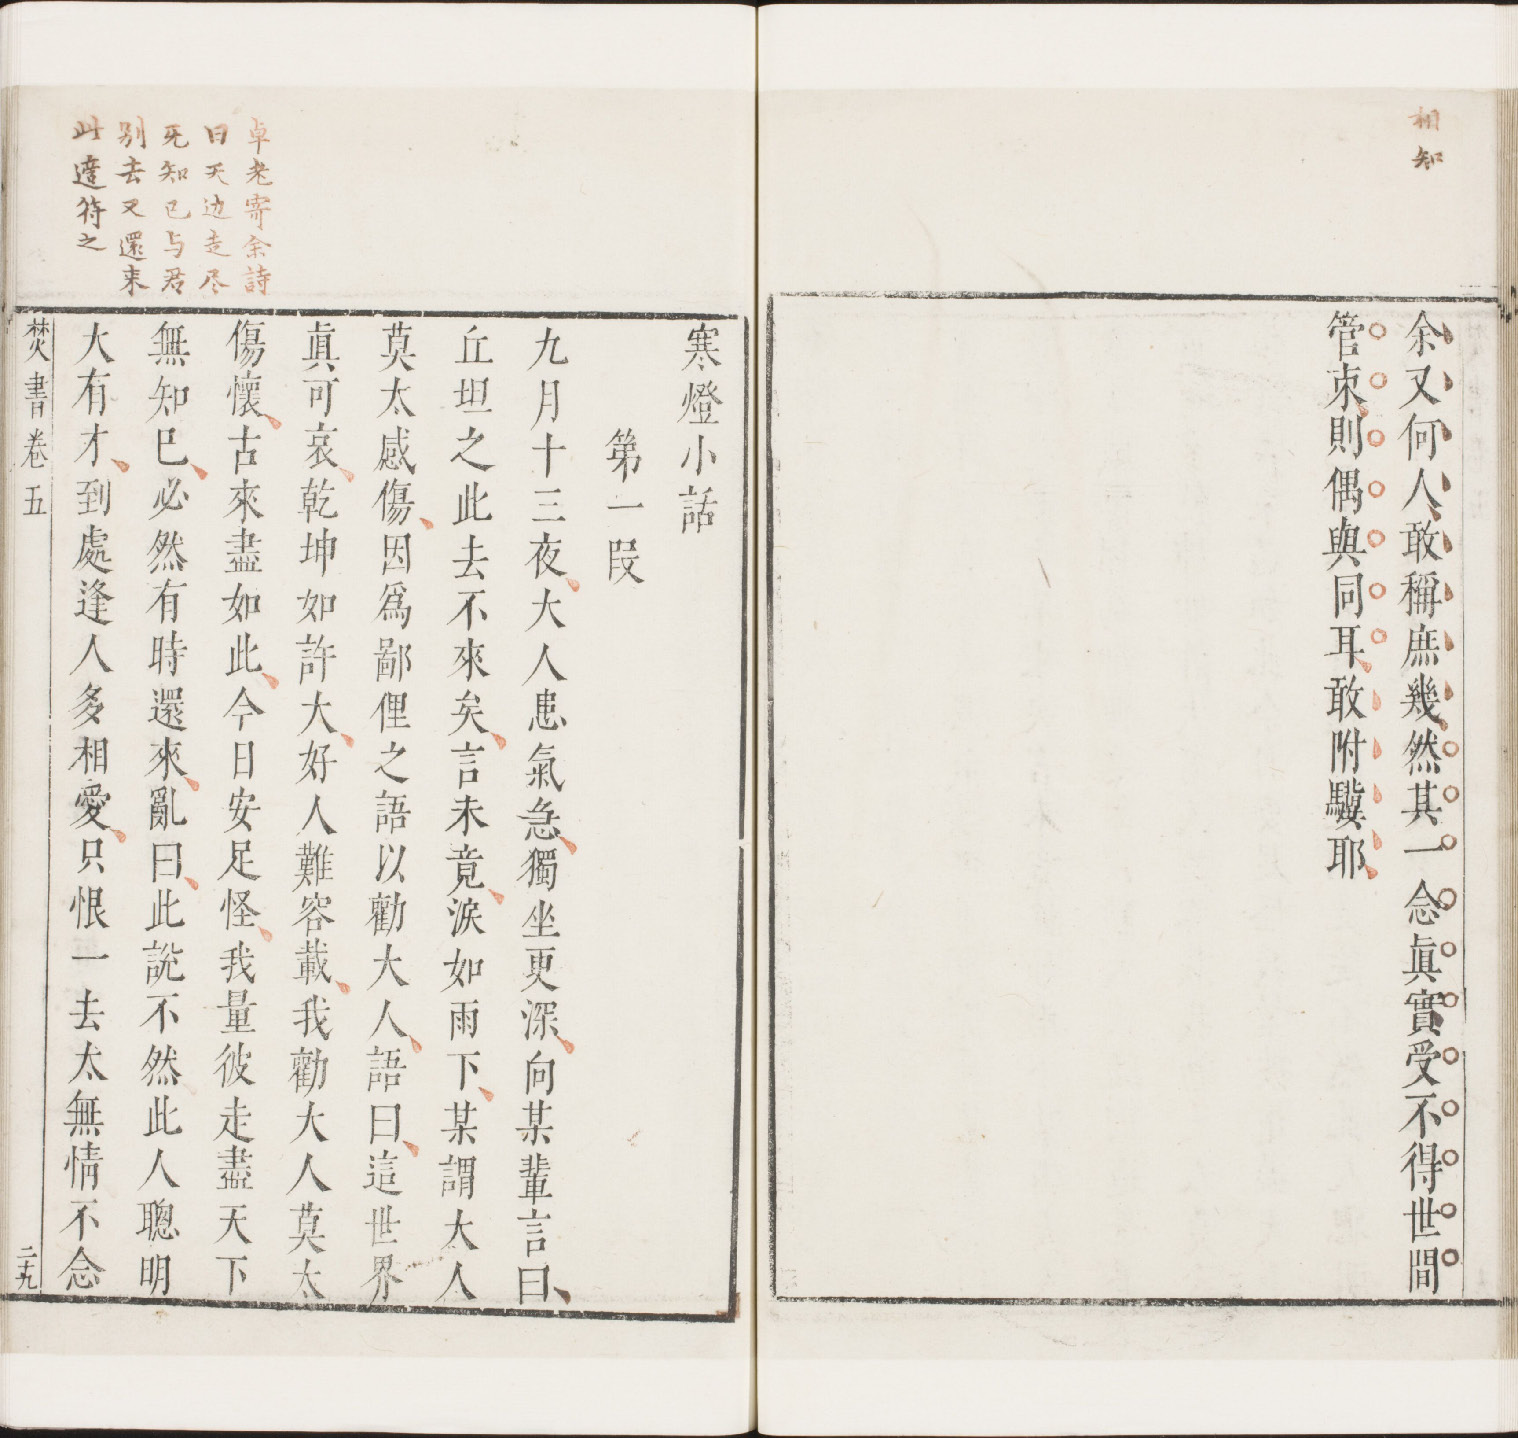 相知
余又何人敢稱庶幾然其一念眞實受不得世間
管束則偶與同耳敢附驥耶
卓老寄余詩
曰天边走尽
死知己与君
别去又還来
此遑符之
寒燈小話
第一段
九月十三夜大人患氣急獨坐更深向某輩言曰
丘坦之此去不來矣言未竟淚如雨下某謂大人
莫太感傷因爲鄙俚之語以勸大人語曰這世界
眞可哀乾坤如許大好人難容載我勸大人莫太
傷懷古來盡如此今日安足怪我量彼走盡天下
無知巳必然有時還來亂曰此說不然此人聰明
大有才到處逢人多相愛只恨一去太無情不念
焚書卷五
二十九